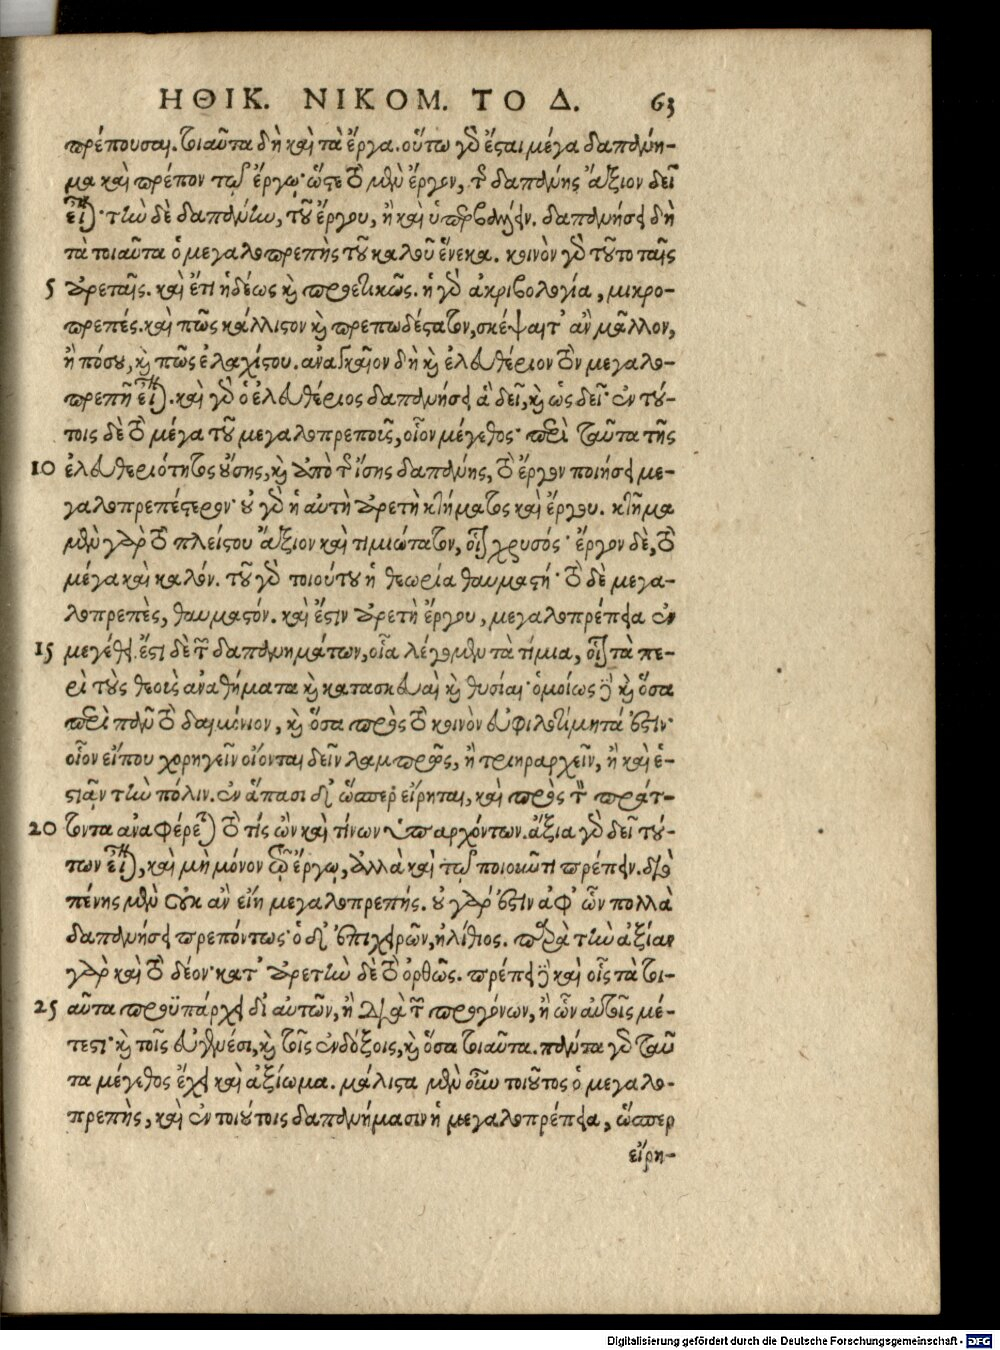 ΗΘΙΚ. ΝΙΚΟΜ. ΤΟ Δ. 63
πρέπουσαι. τοιαῦτα δὴ καὶ τὰ ἔργα. οὕτω γὰρ ἔσαι μέγα δαπάνη-
μα καὶ πρέπον τῷ ἔργῳ· ὥστε τὸ μὲν ἔργον, τῆς δαπάνης ἄξιον δεῖ
εἶναι· τὴν δὲ δαπάνην, τοῦ ἔργου, ἢ καὶ ὑπερβάλλειν. δαπανήσει δὴ
τὰ τοιαῦτα ὁ μεγαλοπρεπὴς τοῦ καλοῦ ἕνεκα. κοινὸν γὰρ τοῦτο ταῖς
5 ἀρεταῖς. καὶ ἔτι ἡδέως καὶ προετικῶς. ἡ γὰρ ἀκριβολογία, μικρο-
πρεπές. καὶ πῶς κάλλιστον καὶ πρεπωδέστατον, σκέψαιτ' ἂν μᾶλλον,
ἢ πόσου, καὶ πῶς ἐλαχίστου. ἀναγκαῖον δὴ καὶ ἐλευθέριον τὸν μεγαλο-
πρεπῆ εἶναι. καὶ γὰρ ὁ ἐλευθέριος δαπανήσει ἃ δεῖ, καὶ ὡς δεῖ· ἐν τού-
τοις δὲ τὸ μέγα τοῦ μεγαλοπρεποῦς, οἷον μέγεθος· περὶ ταῦτα τῆς
10 ἐλευθεριότητος οὔσης, καὶ ἀπὸ τῆς ἴσης δαπάνης, τὸ ἔργον ποιήσει με-
γαλοπρεπέστερον· οὐ γὰρ ἡ αὐτὴ ἀρετὴ κτήματος καὶ ἔργου. κτῆμα
μὲν γὰρ τὸ πλείστου ἄξιον καὶ τιμιώτατον, οἷον χρυσός· ἔργον δὲ, τὸ
μέγα καὶ καλόν. τοῦ γὰρ τοιούτου ἡ θεωρία θαυμαστή· τὸ δὲ μεγα-
λοπρεπὲς, θαυμαστόν. καὶ ἔστιν ἀρετὴ ἔργου, μεγαλοπρέπεια ἐν
15 μεγέθει. ἔστι δὲ τῶν δαπανημάτων, οἷα λέγομεν τὰ τίμια, οἷον τὰ πε-
ρὶ τοὺς θεοὺς ἀναθήματα καὶ κατασκευαὶ καὶ θυσίαι· ὁμοίως δὲ καὶ ὅσα
περὶ πᾶν τὸ δαιμόνιον, καὶ ὅσα πρὸς τὸ κοινὸν εὐφιλοτίμητά ἐστιν·
οἷον εἴπου χορηγεῖν οἴονται δεῖν λαμπρῶς, ἢ τριηραρχεῖν, ἢ καὶ ἑ-
στιᾶν τὴν πόλιν. ἐν ἅπασι δ' ὥσπερ εἴρηται, καὶ πρὸς τὸν πράτ-
20 τοντα ἀναφέρεται τὸ τίς ὢν καὶ τίνων ὑπαρχόντων. ἄξια γὰρ δεῖ τού-
των εἶναι, καὶ μὴ μόνον τῷ ἔργῳ, ἀλλὰ καὶ τῷ ποιοῦντι πρέπειν. διὸ
πένης μὲν οὐκ ἂν εἴη μεγαλοπρεπής. οὐ γάρ ἐστιν ἀφ' ὧν πολλὰ
δαπανήσει πρεπόντως· ὁ δ' ἐπιχειρῶν, ἠλίθιος. παρὰ τὴν ἀξίαν
γὰρ καὶ τὸ δέον· κατ' ἀρετὴν δὲ τὸ ὀρθῶς. πρέπει δὲ καὶ οἷς τὰ τοι-
25 αῦτα προϋπάρχει δι' αὐτῶν, ἢ διὰ τῶν προγόνων, ἢ ὧν αὐτοῖς μέ-
τεστι· καὶ τοῖς εὐγενέσι, καὶ τοῖς ἐνδόξοις, καὶ ὅσα τοιαῦτα. πάντα γὰρ ταῦ
τα μέγεθος ἔχει καὶ ἀξίωμα. μάλιστα μὲν οὖν τοιοῦτος ὁ μεγαλο-
πρεπὴς, καὶ ἐν τοιούτοις δαπανήμασιν ἡ μεγαλοπρέπεια, ὥσπερ
εἴρη-
Digitalisierung gefördert durch die Deutsche Forschungsgemeinschaft - DFG